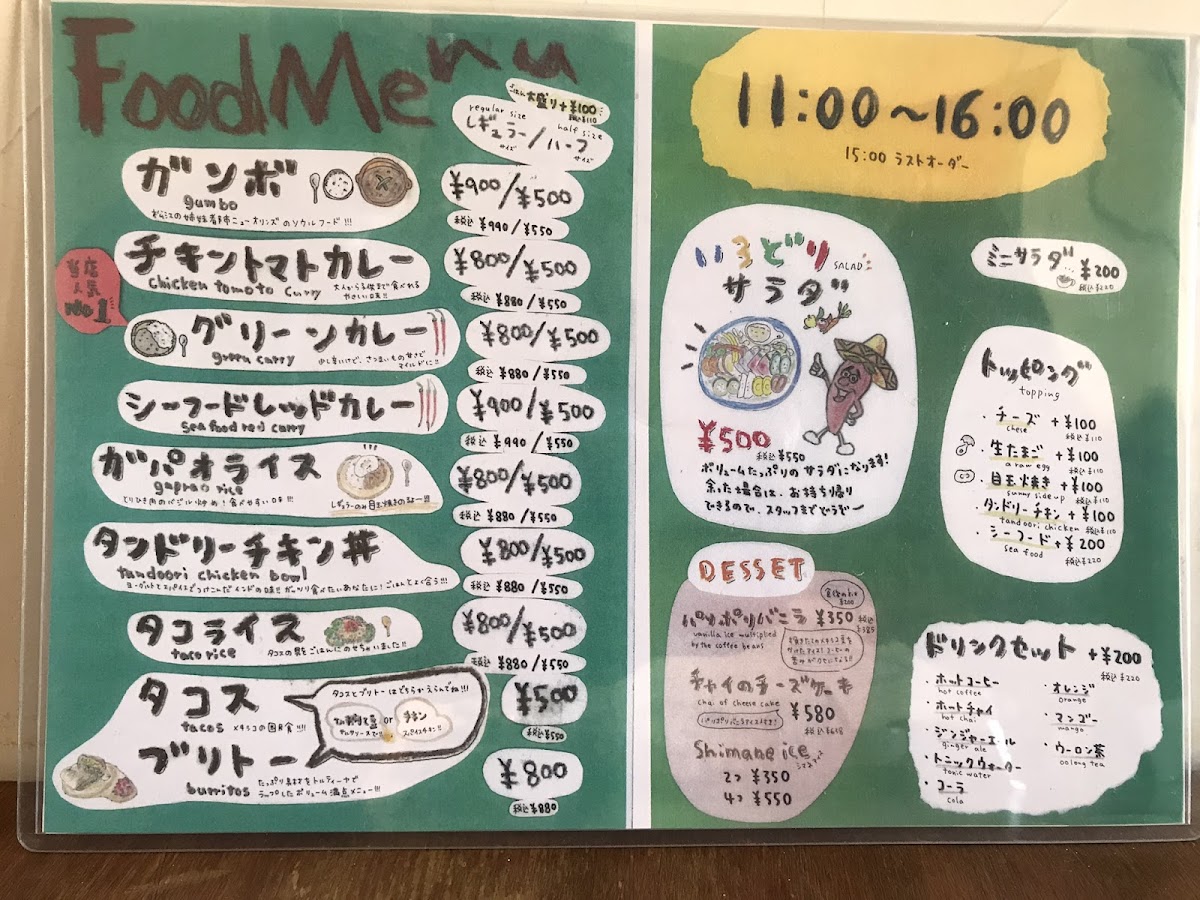 Food Menu
ごはん大盛り+¥100
税込¥110
regular size
half size
レギュラー/ハーフ
サイズ
サイズ
ガンボ
gumbo
¥900/¥500
税込 ¥990/¥550
チキントマトカレー
chicken tomato curry
大人から子供まで食べれる
やさしい味!!
¥800/¥500
税込 ¥880/¥550
当店
人気
No1
グリーンカレー
green curry
少し辛いけど、さつまいもの甘さで
マイルドに!!
¥800/¥500
税込 ¥880/¥550
シーフードレッドカレー
Sea food red curry
¥900/¥500
税込 ¥990/¥550
ガパオライス
gaprao rice
とりひき肉のバジル炒め!食べやすい味!!!
レギュラーのみ目玉焼きのるよー!!!
¥800/¥500
税込 ¥880/¥550
タンドリーチキン丼
tandoori chicken bowl
ヨーグルトとスパイスでつけこんだインドの味!! ガッツリ食べたいあなたに!ごはんとよく合う!!!
¥800/¥500
税込 ¥880/¥550
タコライス
taco rice
タコスの具をごはんにのせちゃいました!!
¥800/¥500
税込 ¥880/¥550
タコス
tacos
メキシコの国民食!!!
¥500
税込¥550
タコスとブリトーはどちらかえらんでね!!!
or
チキン
ブリトー
burritos
たっぷり具材をトルティーヤで
ラップしたボリューム満点メニュー!!!
¥800
税込¥880
11:00~16:00
15:00 ラストオーダー
いろどり
SALAD
サラダ
¥500
税込¥550
ボリュームたっぷりのサラダになります!
余った場合は、お持ち帰り
できるので、スタッフまでどうぞー
ミニサラダ
¥200
税込¥220
トッピング
topping
・チーズ +¥100
chese 税込¥110
・生たまご +¥100
a raw egg 税込¥110
・目玉焼き +¥100
sunny side up 税込¥110
・タンドリーチキン +¥100
tandoori chicken 税込¥110
・シーフード +¥200
sea food
税込¥220
DESSET
パリポリバニラ ¥350
税込
¥385
vanilla ice multiplied
by the coffee beans
チャイのチーズケーキ
chai of cheese cake
¥580
税込¥638
Shimane ice
2つ ¥350
4つ ¥550
ドリンクセット +¥200
税込¥220
・ホットコーヒー
hot coffee
・ホットチャイ
hot chai
・ジンジャーエール
ginger ale
・トニックウォーター
tonic water
・コーラ
cola
・オレンジ
orange
・マンゴー
mango
・ウーロン茶
oolong tea